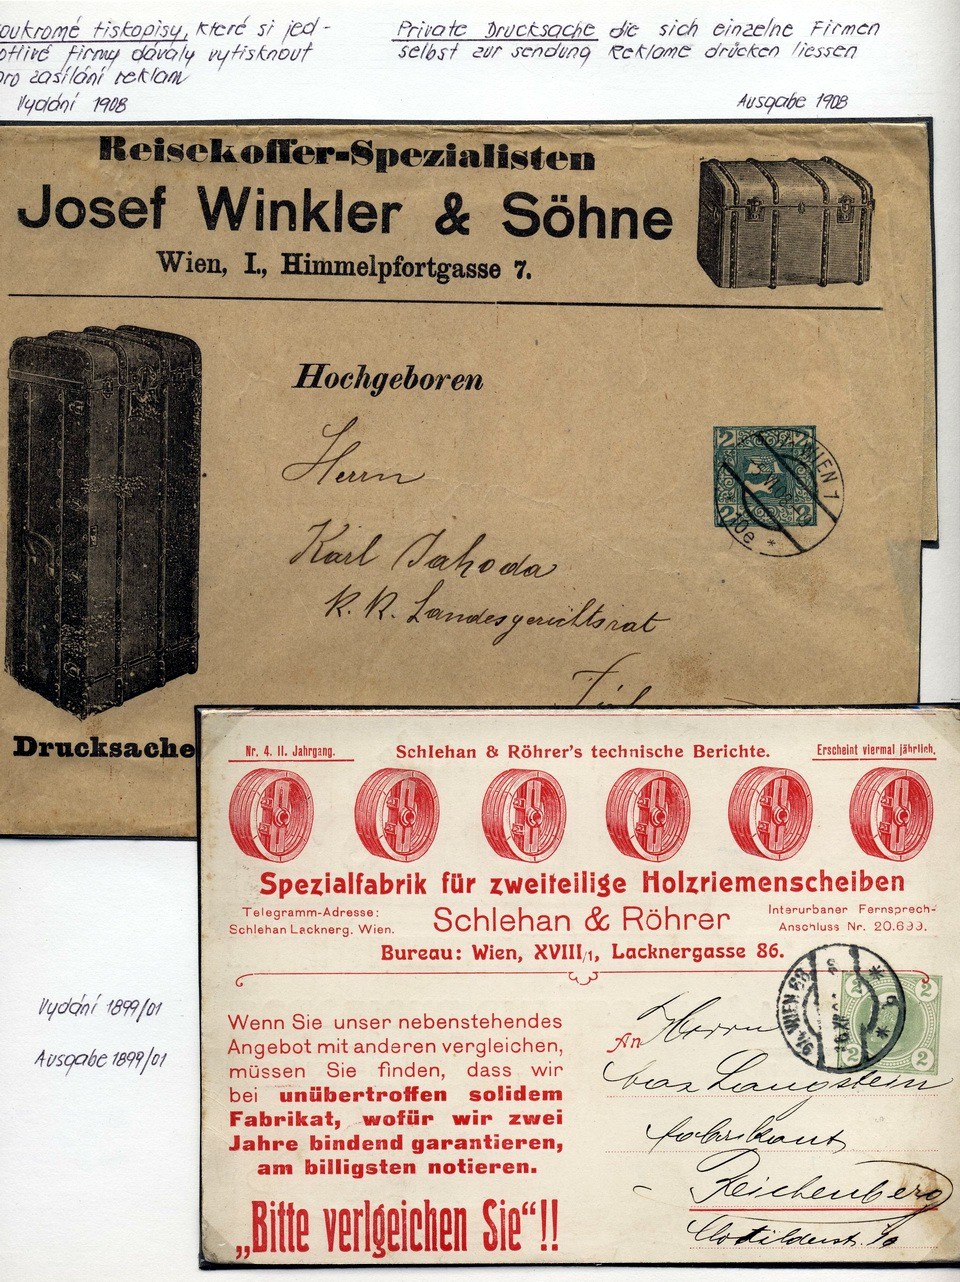 oukromé tiskopisy, které si jed-
otlivé firmy dávaly vytisknout
pro zasílání reklam
Vydání 1908
Private Drucksache die sich einzelne Firmen
selbst zur sendung Reklame drücken liessen
Ausgabe 1908
Reisekoffer-Spezialisten
Josef Winkler & Söhne
Wien, I., Himmelpfortgasse 7.
Hochgeboren
Herrn
Karl Jahoda
K. K. Landesgerichtsrat
2 2
2 2
WIEN 1
10e *
Drucksache
Nr. 4. II. Jahrgang.
Schlehan & Röhrer's technische Berichte.
Erscheint viermal jährlich.
Spezialfabrik für zweiteilige Holzriemenscheiben
Telegramm-Adresse:
Schlehan Lacknerg. Wien.
Schlehan & Röhrer
Interurbaner Fernsprech-
Anschluss Nr. 20.699.
Bureau: Wien, XVIII/1, Lacknergasse 86.
Vydání 1899/01
Ausgabe 1899/01
Wenn Sie unser nebenstehendes
Angebot mit anderen vergleichen,
müssen Sie finden, dass wir
bei unübertroffen solidem
Fabrikat, wofür wir zwei
Jahre bindend garantieren,
am billigsten notieren.
„Bitte verlgeichen Sie"!!
WIEN
2
2 2
An Herrn
Langstein
Fabrikant
Reichenberg
Clotildenstr. 10